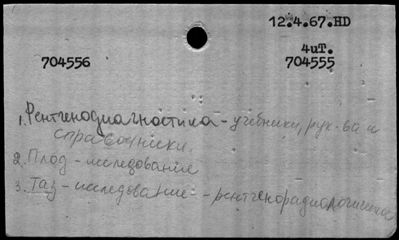 12.4.67.HD
4иT.
704556
704555
1. Рентгенодиагностика - учебники, рук-ва и
справочники.
2. Плод - исследование
3. Таз - исследование - рентгенорадиологическое